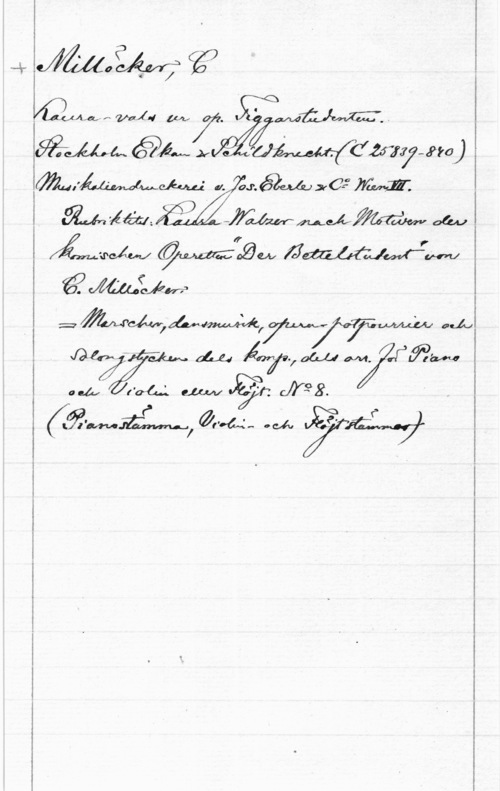 + Millöcker, C
Laura-vals ur op. Tiggarstudenten.
Stockholm Elkan & Schildknecht. (C 25839-840)
Musikaliendruckerei v. Jos. Eberle & Co Wien VII.
Rubriktitel: Laura-Walzer nach Motiven der
komischen Operette "Der Bettelstudent" von
C. Millöcker.
= Marscher, dansmusik, opera-potpourrier och
salongstycken dels komp., dels arr. för Piano
och Violin eller Flöjt. No 8.
(Pianostämma, Violin- och Flöjtstämmor)